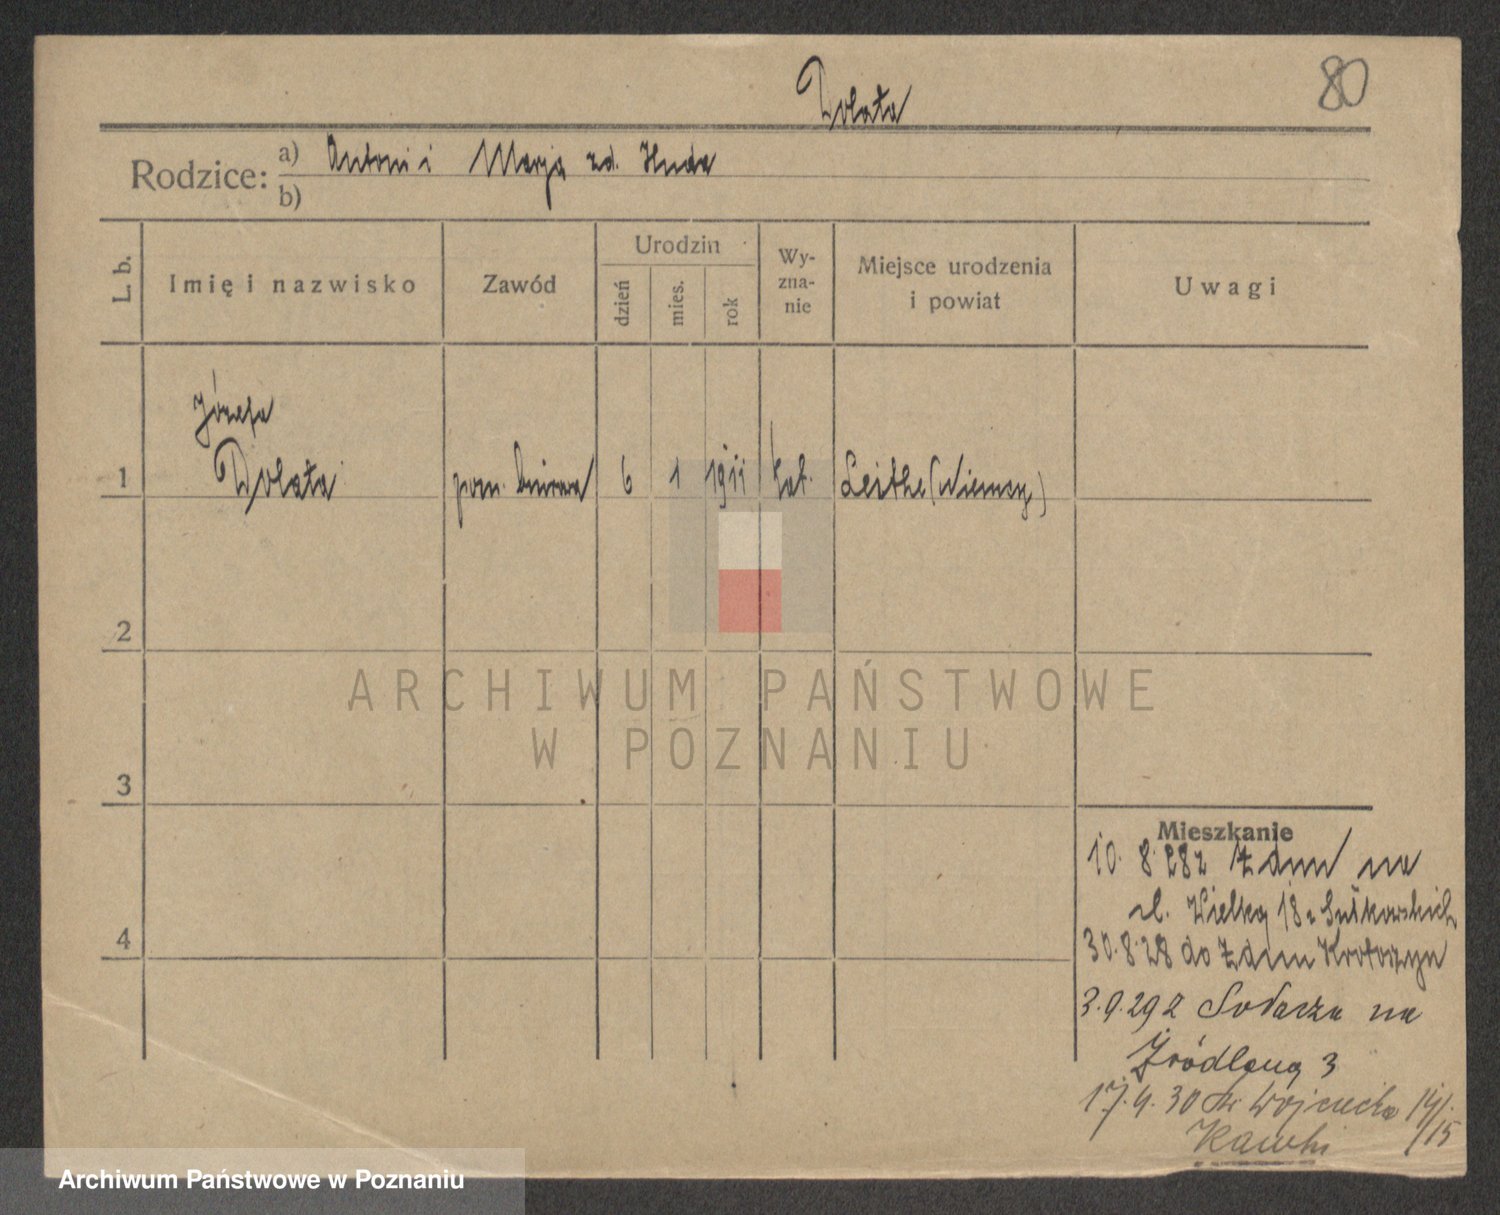 Dolata
80
Rodzice: a) Antoni i Marja zd. Huda
b)
L. b.
Imię i nazwisko
Zawód
Urodzin
dzień
mies.
rok
Wy-
zna-
nie
Miejsce urodzenia
i powiat
Uwagi
Józefa
1 Dolata pom. biurowa 6 1 1911 kat. Leithe (Niemcy)
2
3
4
Mieszkanie
10. 8. 28 z Zdun na
ul. Wielką 18 u Sułkowskich
30. 8. 28 do Zdun Krotoszyn
3. 9. 29 z na
Źródlaną 3
17. 4. 30 Wojciecha 14/15
Kawki
ARCHIWUM PAŃSTWOWE
W POZNANIU
Archiwum Państwowe w Poznaniu